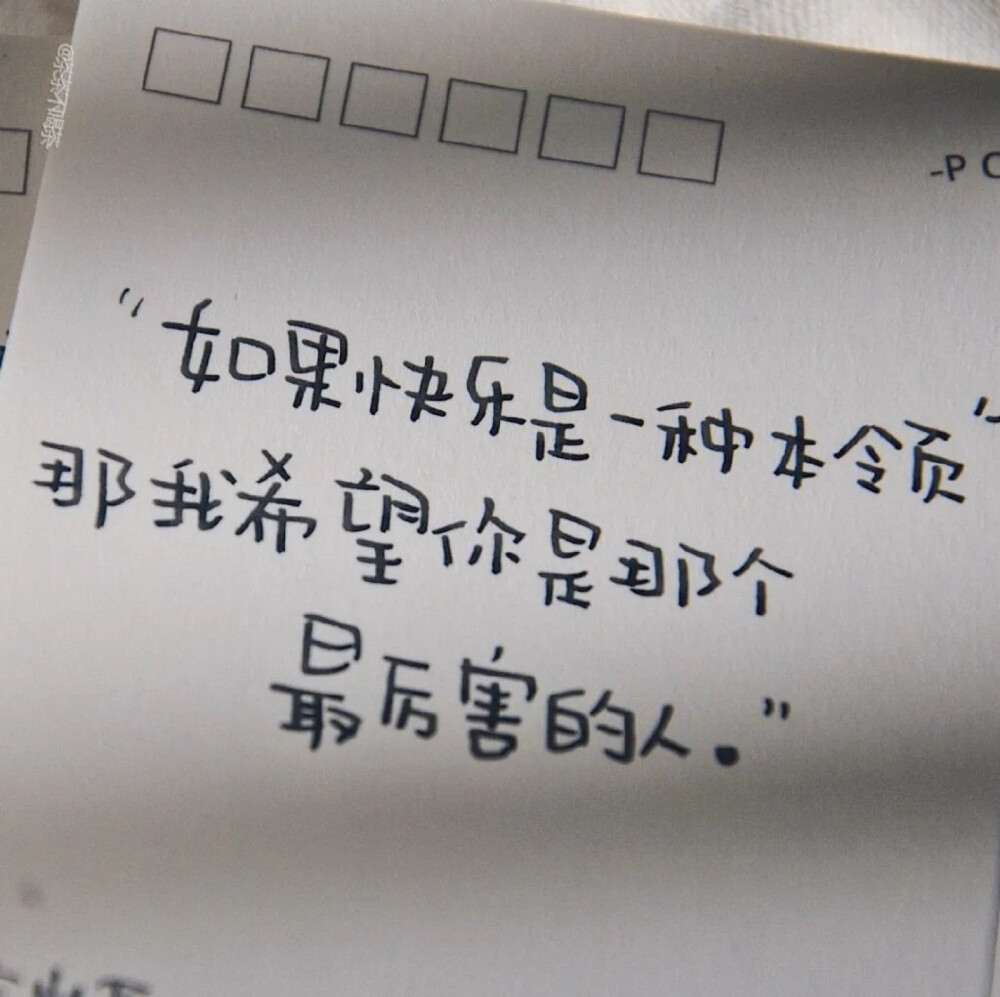 “如果快乐是一种本领”
那我希望你是那个
最厉害的人.”
-P